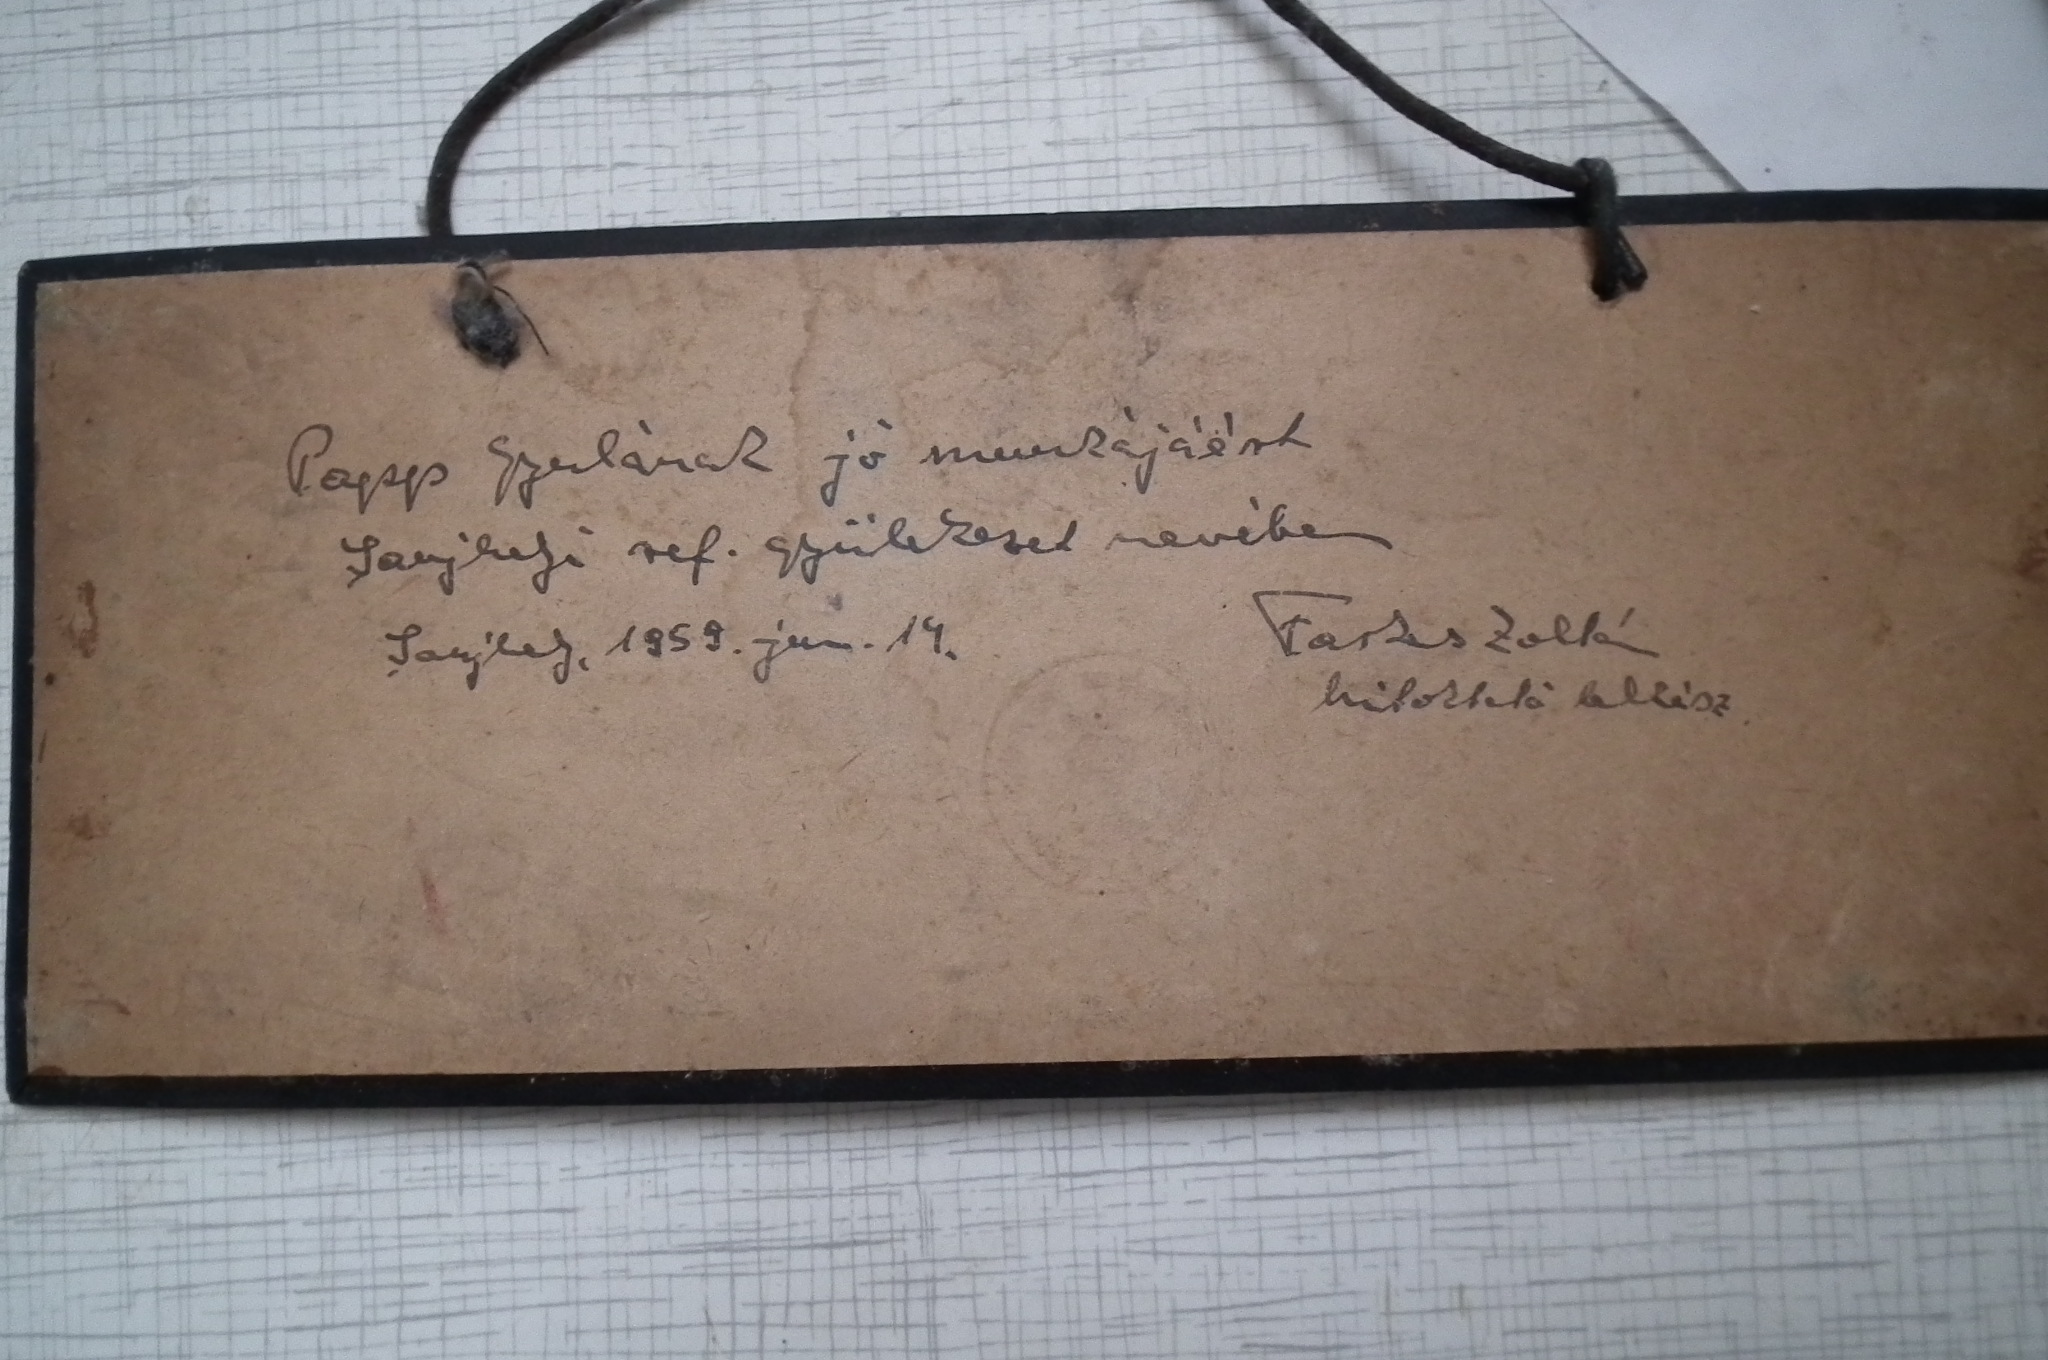 Papp Gyulának jó munkájáért
Sonjhegyi ref. gyülekezet nevében
Sonjhegy, 1959. jun. 14.
Farkas Zoltán
hitoktató lelkész